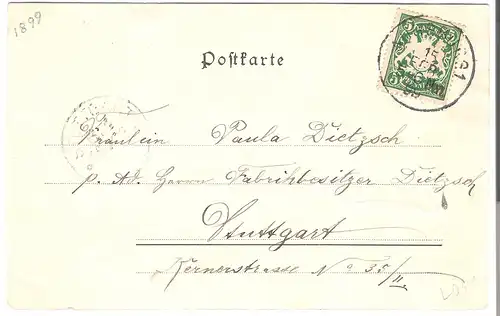 1899
Postkarte
5 5
15
FEB
Fräulein Paula Dietzsch
p. Ad. Herrn Fabrikbesitzer Dietzsch
Stuttgart
Kernerstrasse No 35/II.